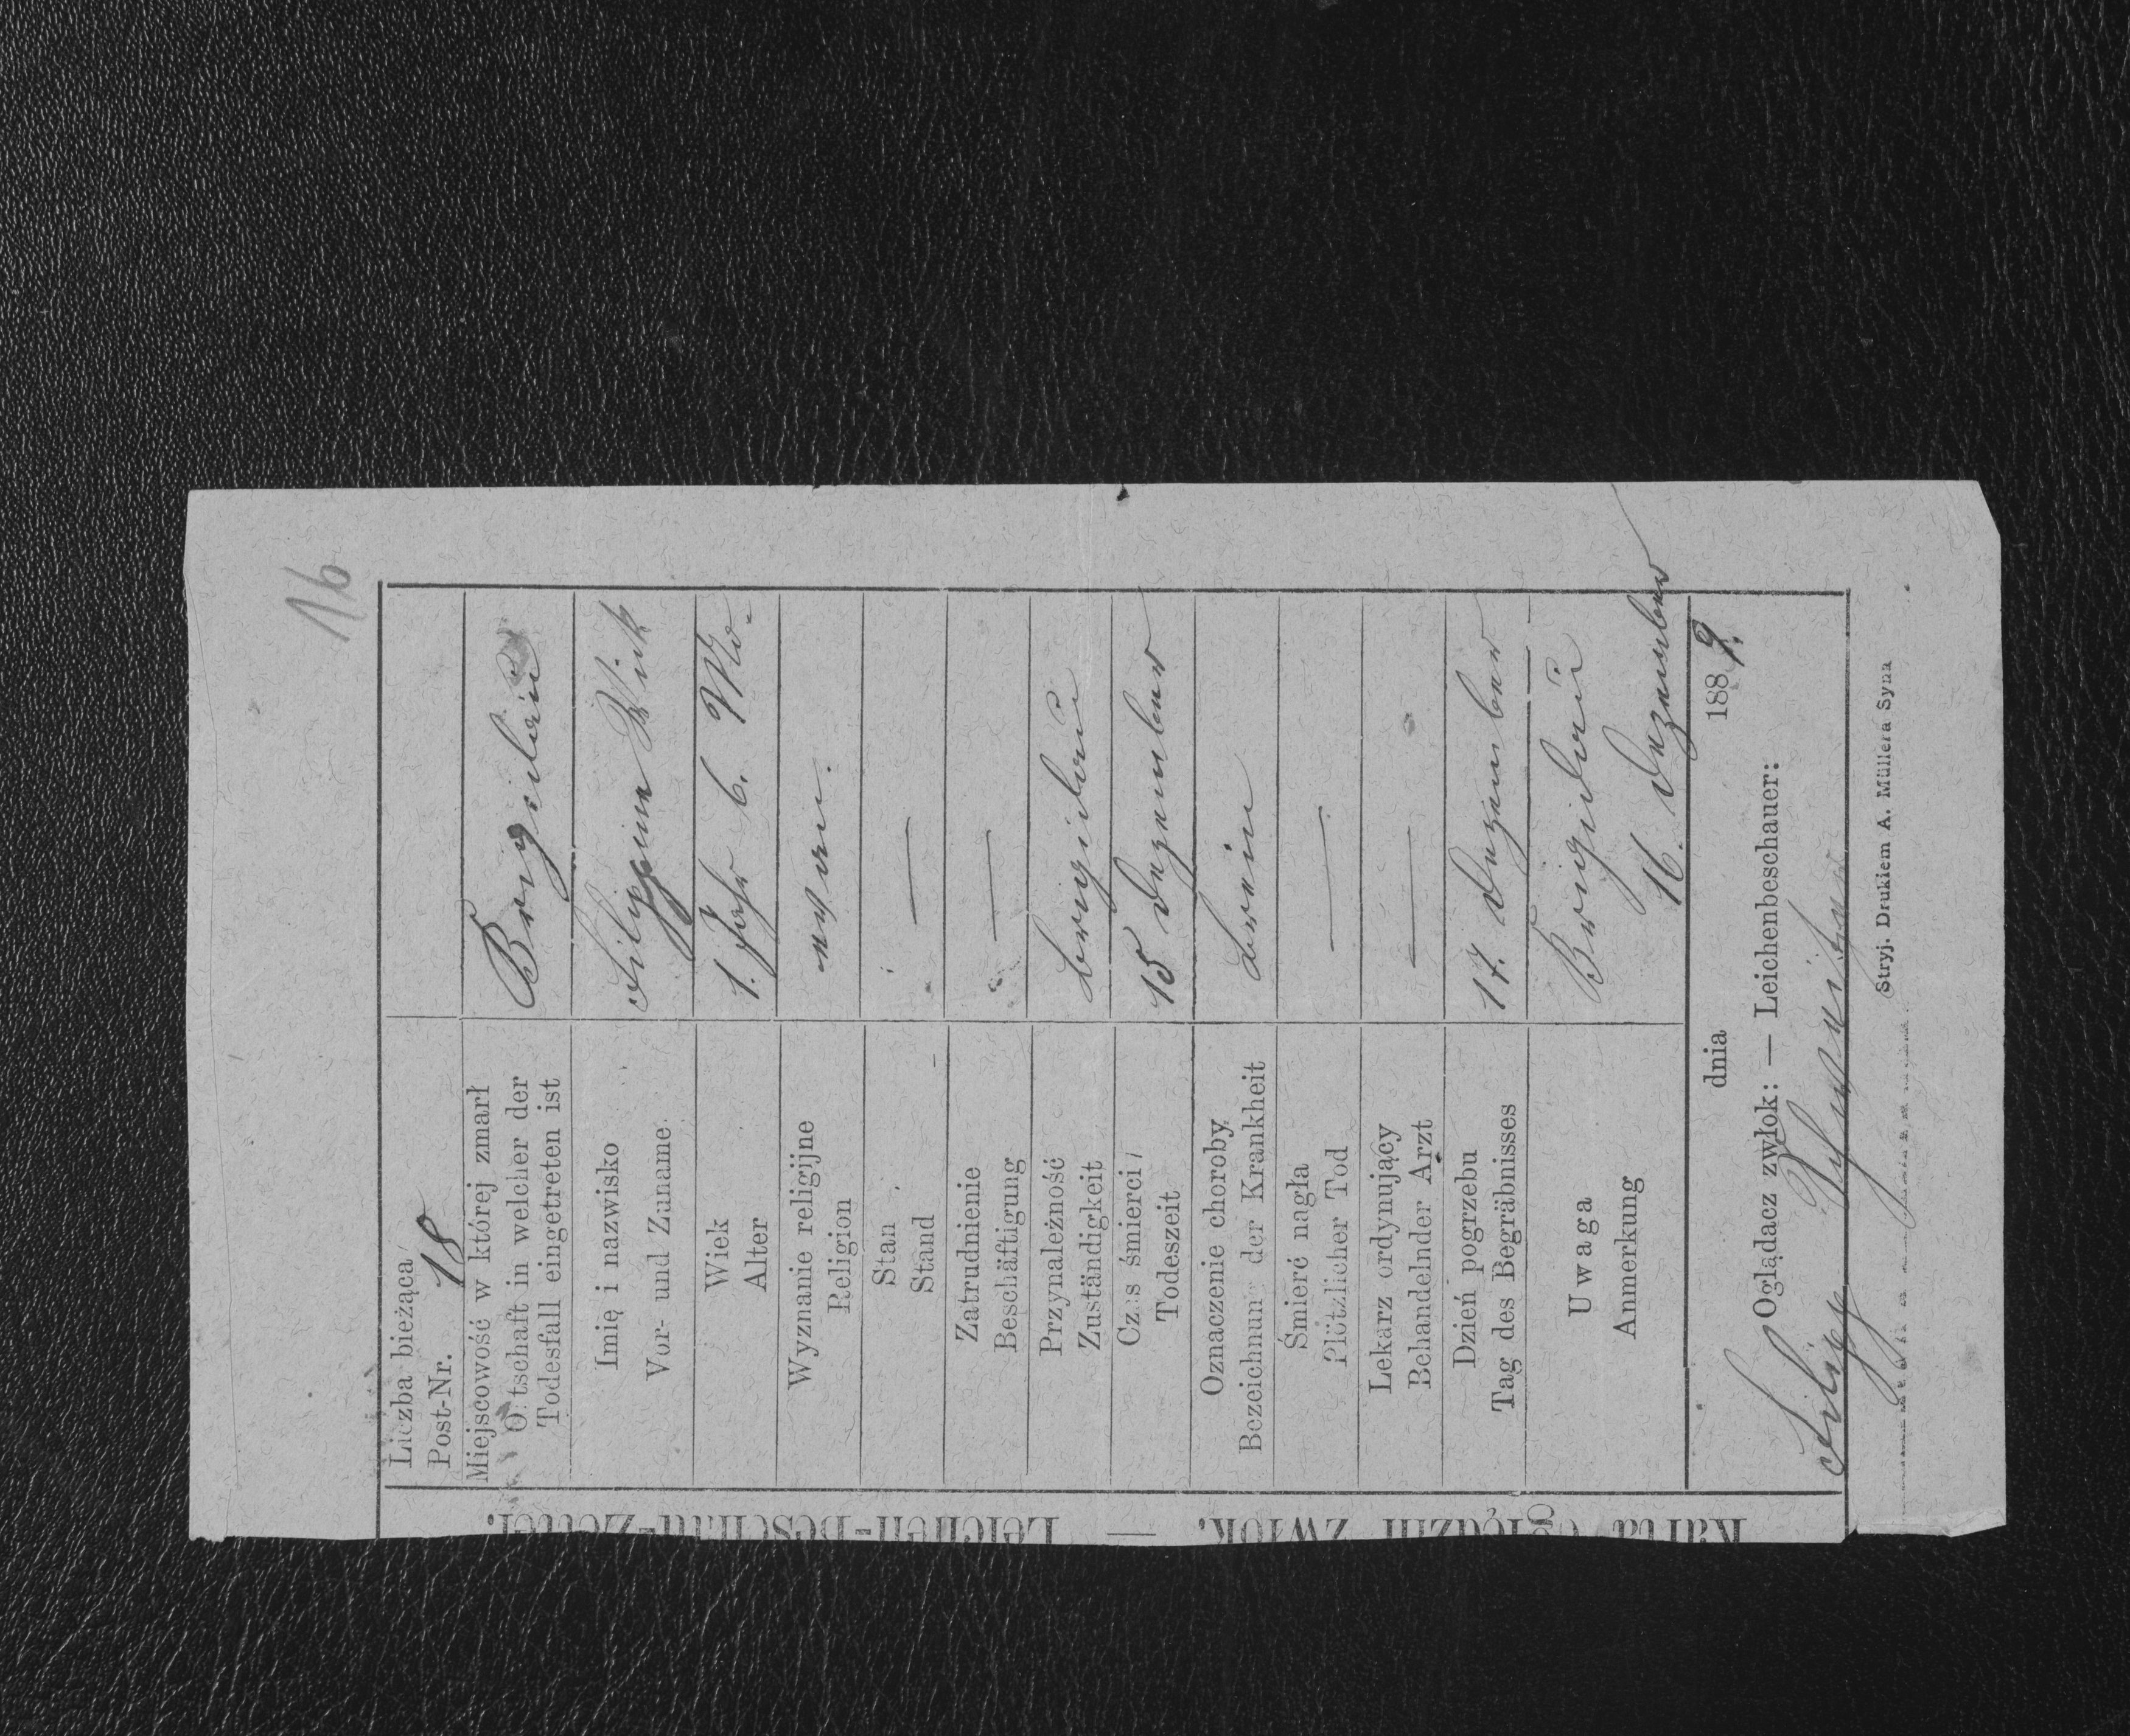 16
Karta oględzin zwłok. — Leichen-Beschau-Zettel.
Liczba bieżąca
Post-Nr. 18
Miejscowość w której zmarł
Ortschaft in welcher der
Todesfall eingetreten ist
Brigidau
Imię i nazwisko
Vor- und Zuname
Filippine
Wiek
Alter
1. Jahr 6. Mo.
Wyznanie religijne
Religion
Stan
Stand
—
Zatrudnienie
Beschäftigung
—
Przynależność
Zuständigkeit
Brigidau
Czas śmierci
Todeszeit
15 Dezember
Oznaczenie choroby
Bezeichnung der Krankheit
Śmierć nagła
Plötzlicher Tod
—
Lekarz ordynujący
Behandelnder Arzt
—
Dzień pogrzebu
Tag des Begräbnisses
17. Dezember
Uwaga
Anmerkung
Brigidau
16. Dezember
dnia 1889.
Oglądacz zwłok: — Leichenbeschauer:
Filipp
Stryj. Drukiem A. Müllera Syna